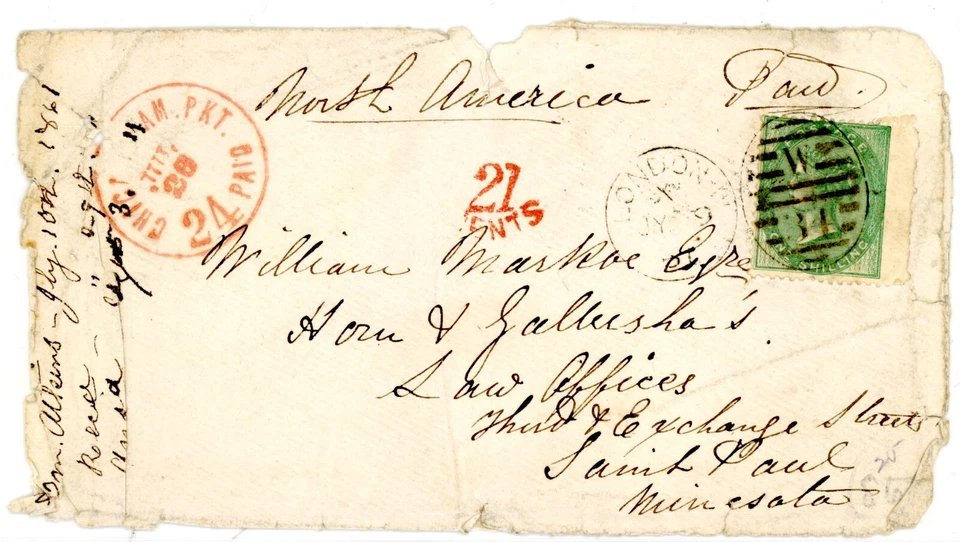 North America
Paid.
AM. PKT.
24 PAID
28
21
CENTS
LONDON-W
JY
W
34
SHILLING
William Markoe Esqre
Horn & Gallusha's
Law Offices
Third & Exchange Streets
Saint Paul
Minesota
Atkins - July. 10th. 1861
Recd - " Augt. "
Ansd